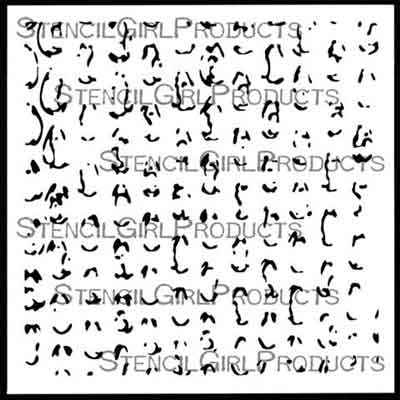 STENCILGIRLPRODUCTS
STENCILGIRLPRODUCTS
STENCILGIRLPRODUCTS
STENCILGIRLPRODUCTS
STENCILGIRLPRODUCTS
STENCILGIRLPRODUCTS